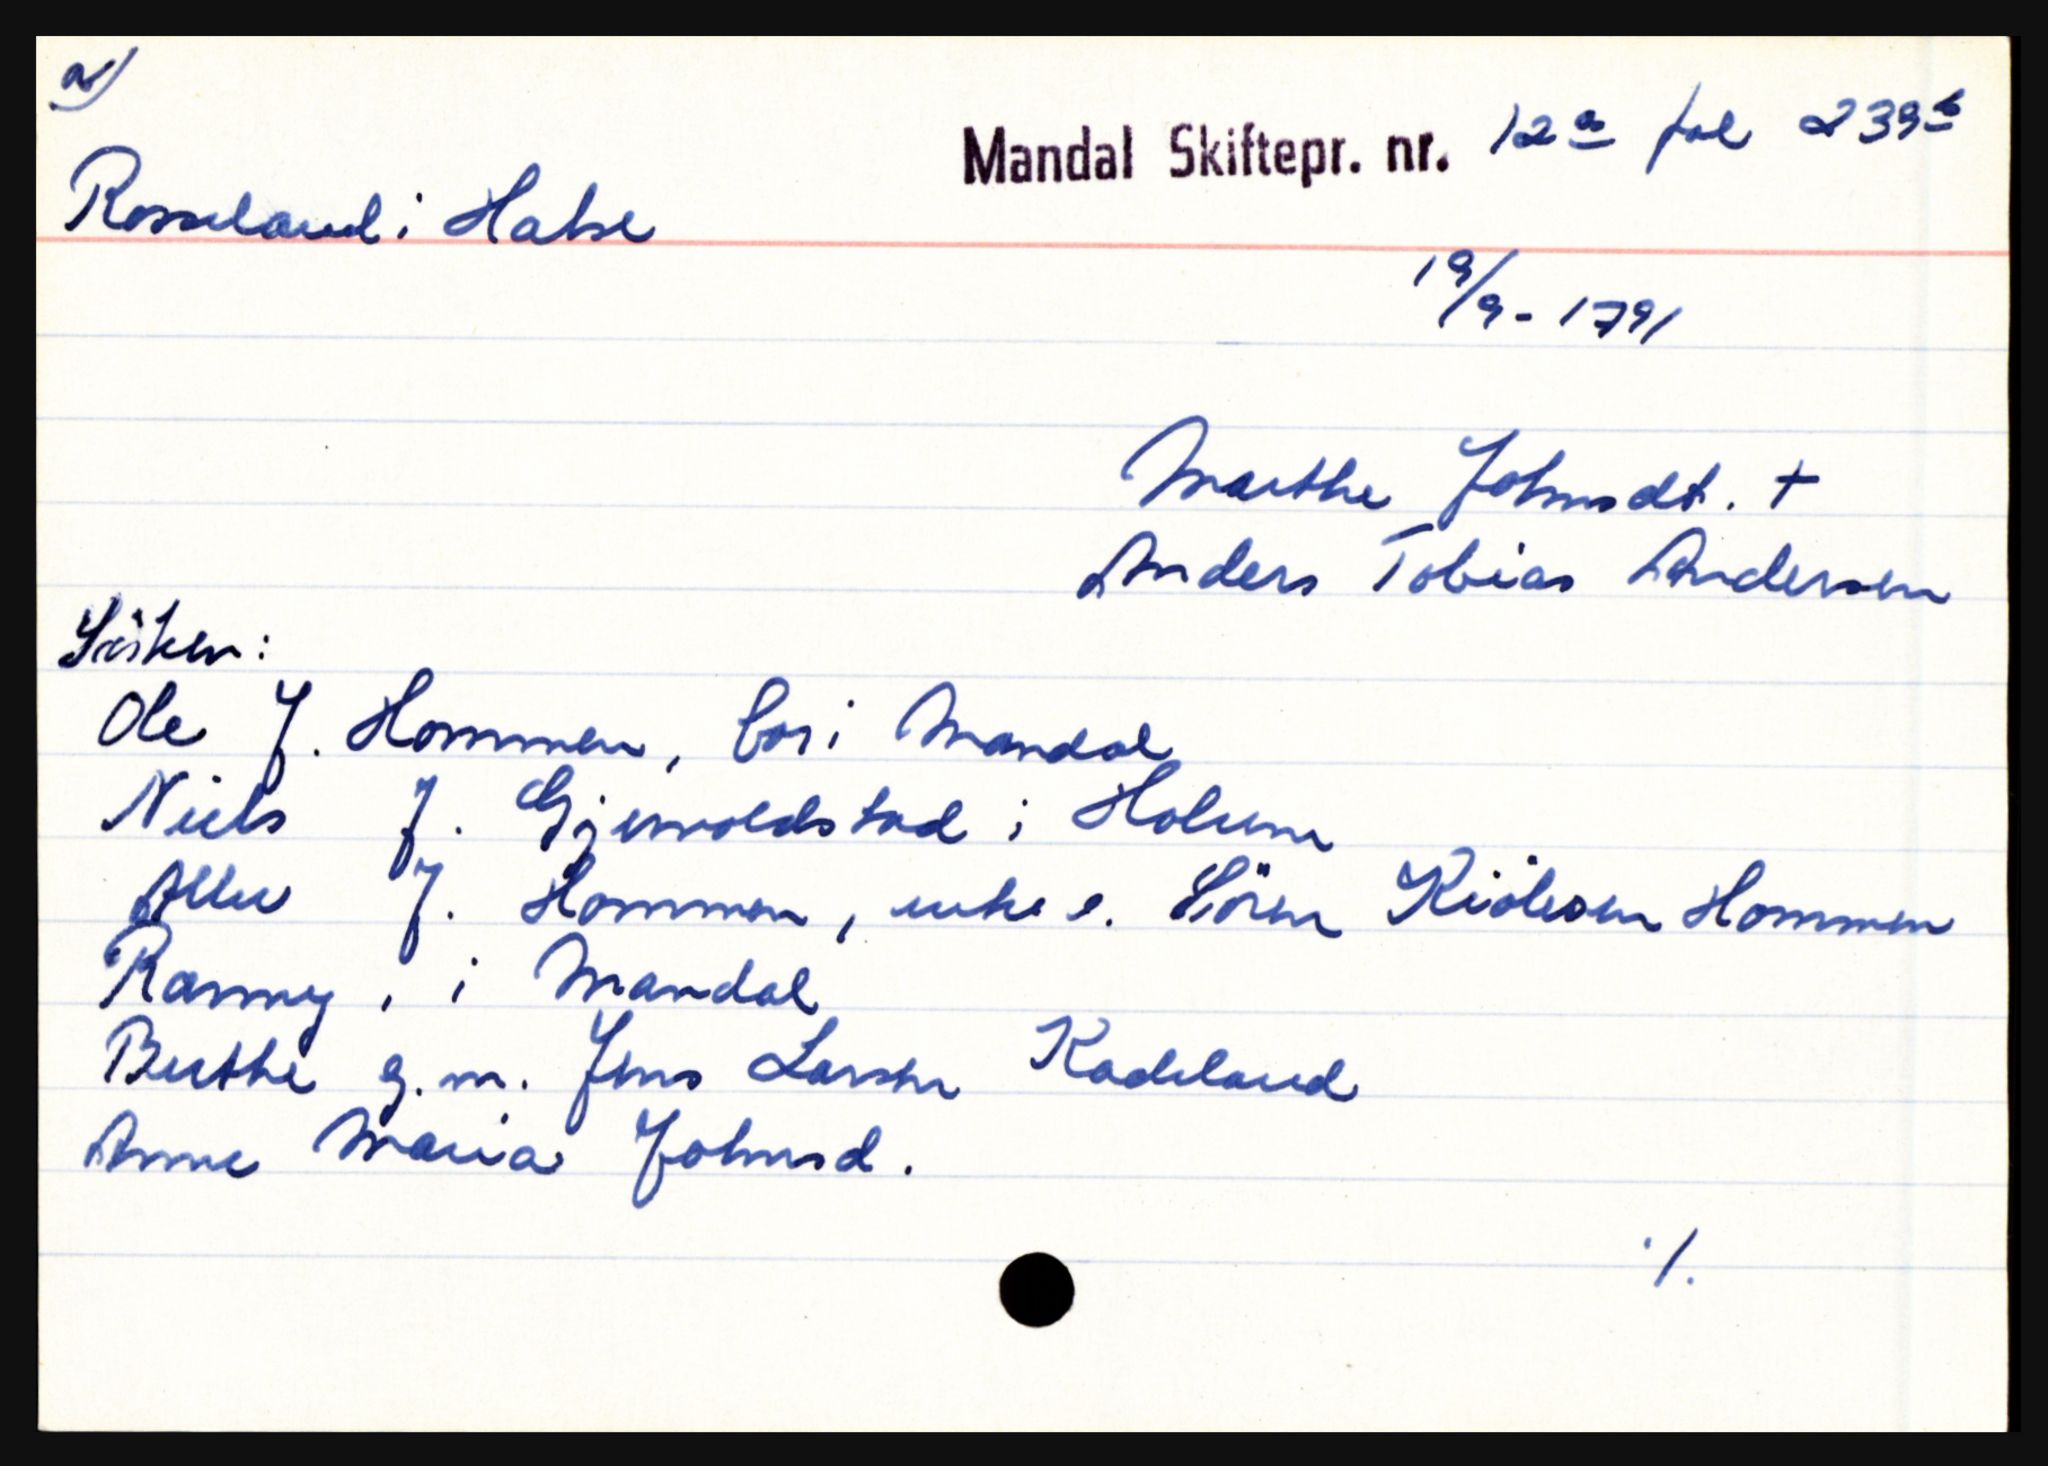 a)
Mandal Skiftepr. nr. 12a fol 239b
Rosseland i Halse
19/9-1791
Marthe Johnsdt. +
Anders Tobias Andersen
Sösken:
Ole J. Hommen, bor i Mandal
Niels J. Gjervoldstad i Holum
Allis J. Hommen, enke e. Sören Kiölesen Hommen
Ranney, i Mandal
Berthe g.m. Jens Larsen Kadeland
Anne Maria Johnsd.
./.